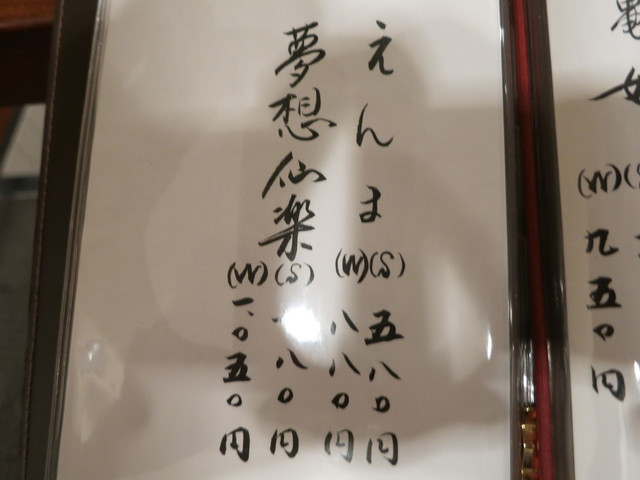 (W)
九五〇円
えんま
(S)五八〇円
(W)八八〇円
夢想仙楽
(S)八〇円
(W)一、〇五〇円